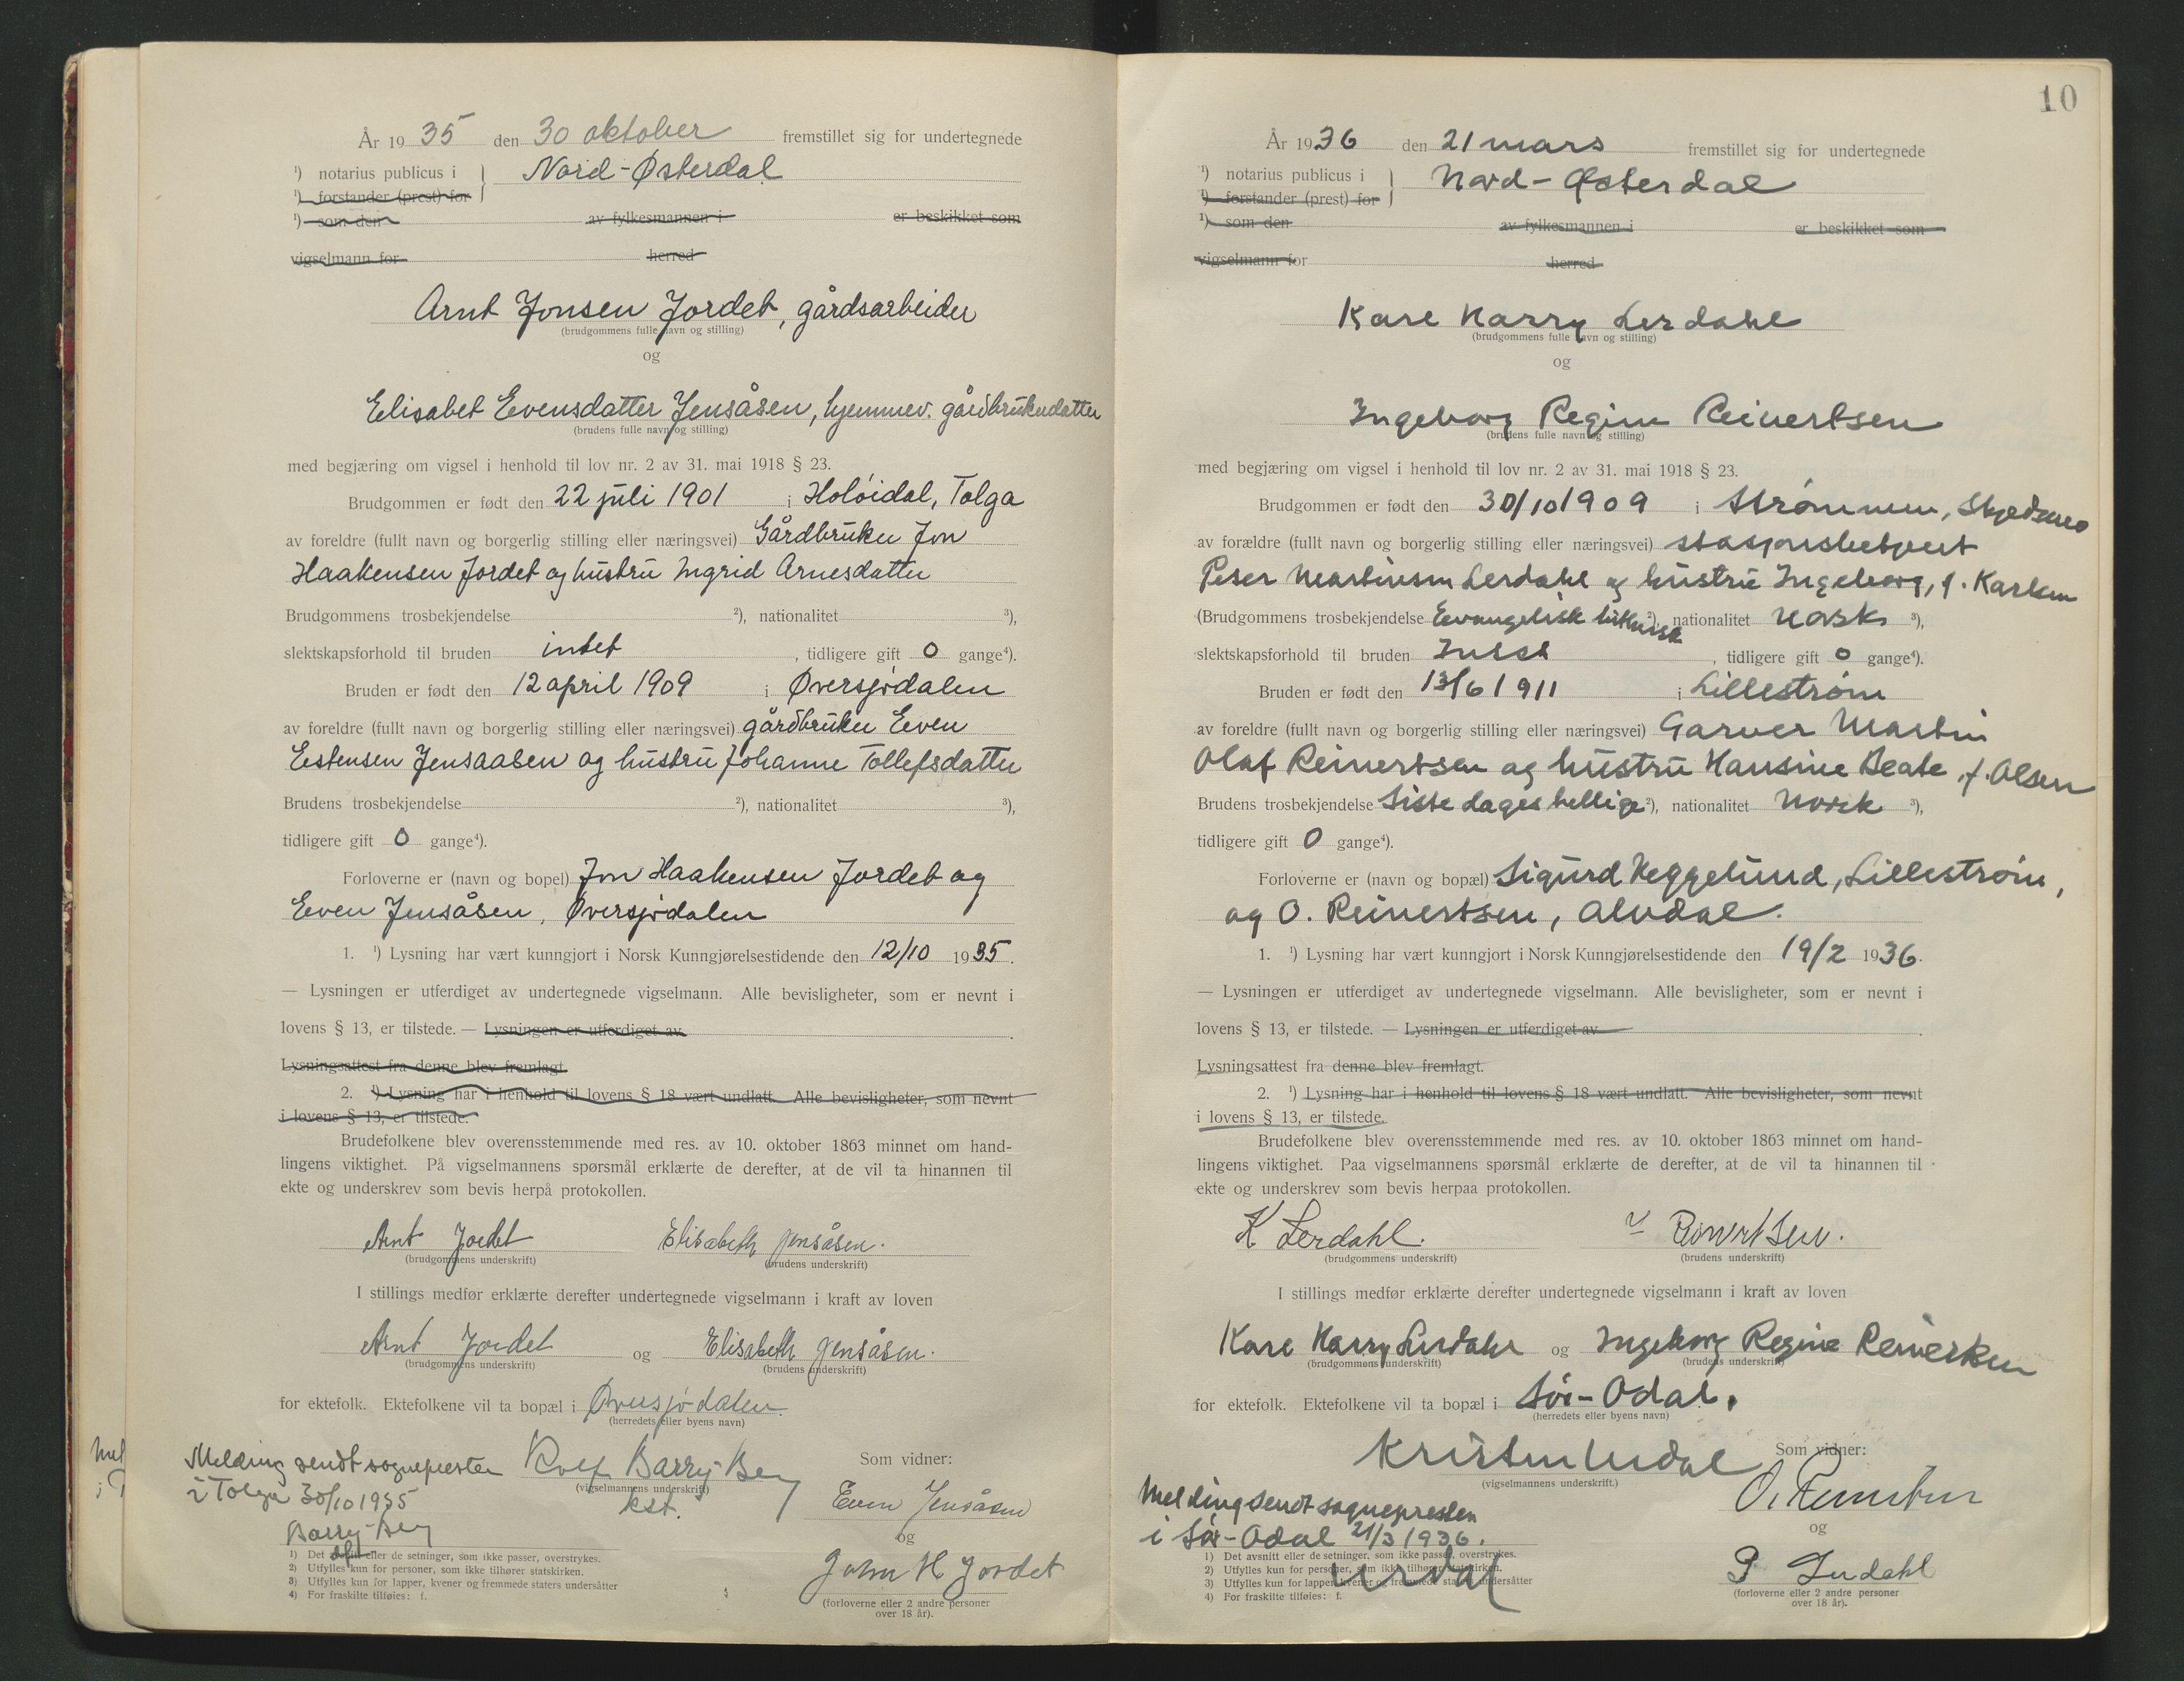 År 1935 den 30 oktober fremstillet sig for undertegnede
¹) notarius publicus i } Nord-Østerdal
¹) forstander (prest) for
¹) som den av fylkesmannen i er beskikket som
vigselmann for herred
Arnt Jonsen Jordet, gårdsarbeider
(brudgommens fulle navn og stilling)
og
Elisabet Evensdatter Jensåsen, hjemmev. gårdbrukerdatter
(brudens fulle navn og stilling)
med begjæring om vigsel i henhold til lov nr. 2 av 31. mai 1918 § 23.
Brudgommen er født den 22 juli 1901 i Holøidal, Tolga
av foreldre (fullt navn og borgerlig stilling eller næringsvei) Gårdbruker Jon
Haakensen Jordet og hustru Ingrid Arnesdatter
Brudgommens trosbekjendelse ²), nationalitet ³),
slektskapsforhold til bruden intet, tidligere gift 0 gange⁴).
Bruden er født den 12 april 1909 i Øversjødalen
av foreldre (fullt navn og borgerlig stilling eller næringsvei) gårdbruker Even
Estensen Jensaasen og hustru Johanne Tollefsdatter
Brudens trosbekjendelse ²), nationalitet ³),
tidligere gift 0 gange⁴).
Forloverne er (navn og bopel) Jon Haakensen Jordet og
Even Jensåsen, Øversjødalen
1. ¹) Lysning har vært kunngjort i Norsk Kunngjørelsestidende den 12/10 1935.
— Lysningen er utferdiget av undertegnede vigselmann. Alle bevisligheter, som er nevnt i
lovens § 13, er tilstede. — Lysningen er utferdiget av
Lysningsattest fra denne blev fremlagt.
2. ¹) Lysning har i henhold til lovens § 18 vært undlatt. Alle bevisligheter, som nevnt
i lovens § 13, er tilstede.
Brudefolkene blev overensstemmende med res. av 10. oktober 1863 minnet om hand-
lingens viktighet. På vigselmannens spørsmål erklærte de derefter, at de vil ta hinannen til
ekte og underskrev som bevis herpå protokollen.
Arnt Jordet Elisabeth Jensåsen.
(brudgommens underskrift) (brudens underskrift)
I stillings medfør erklærte derefter undertegnede vigselmann i kraft av loven
Arnt Jordet og Elisabeth Jensåsen.
(brudgommens underskrift) (brudens underskrift)
for ektefolk. Ektefolkene vil ta bopæl i Øversjødalen.
(herredets eller byens navn)
Melding sendt sognepresten Rolf Barry-Berg Som vidner:
(vigselmannens underskrift)
i Tolga 30/10 1935 kst. Even Jensåsen
Barry-Berg og
John H Jordet
(forloverne eller 2 andre personer
over 18 år).
1) Det avsnitt eller de setninger, som ikke passer, overstrykes.
2) Utfylles kun for personer, som ikke tilhører statskirken.
3) Utfylles kun for lapper, kvener og fremmede staters undersåtter
4) For fraskilte tilføies: f.
10
År 1936 den 21 mars fremstillet sig for undertegnede
¹) notarius publicus i } Nord-Østerdal
¹) forstander (prest) for
¹) som den av fylkesmannen i er beskikket som
vigselmann for herred
Kare Harry Lerdahl
(brudgommens fulle navn og stilling)
og
Ingeborg Regine Reinertsen
(brudens fulle navn og stilling)
med begjæring om vigsel i henhold til lov nr. 2 av 31. mai 1918 § 23.
Brudgommen er født den 30/10 1909 i Strømmen, Skedsmo
av forældre (fullt navn og borgerlig stilling eller næringsvei) stasjonsbetjent
Peter Martinsen Lerdahl og hustru Ingeborg, f. Karlsen
(Brudgommens trosbekjendelse Evangelisk luthersk ²), nationalitet Norsk ³),
slektskapsforhold til bruden Intet, tidligere gift 0 gange⁴).
Bruden er født den 13/6 1911 i Lillestrøm
av foreldre (fullt navn og borgerlig stilling eller næringsvei) Garver Martin
Olaf Reinertsen og hustru Hansine Beate, f. Olsen
Brudens trosbekjendelse Siste dages hellige ²), nationalitet Norsk ³),
tidligere gift 0 gange⁴).
Forloverne er (navn og bopæl) Sigurd Heggelund, Lillestrøm,
og O. Reinertsen, Alvdal.
1. ¹) Lysning har vært kunngjort i Norsk Kunngjørelsestidende den 19/2 1936.
— Lysningen er utferdiget av undertegnede vigselmann. Alle bevisligheter, som er nevnt i
lovens § 13, er tilstede. — Lysningen er utferdiget av
Lysningsattest fra denne blev fremlagt.
2. ¹) Lysning har i henhold til lovens § 18 vært undlatt. Alle bevisligheter, som nevnt
i lovens § 13, er tilstede.
Brudefolkene blev overensstemmende med res. av 10. oktober 1863 minnet om hand-
lingens viktighet. Paa vigselmannens spørsmål erklærte de derefter, at de vil ta hinannen til
ekte og underskrev som bevis herpaa protokollen.
K Lerdahl. Reinertsen.
(brudgommens underskrift) (brudens underskrift)
I stillings medfør erklærte derefter undertegnede vigselmann i kraft av loven
Kare Harry Lerdahl og Ingeborg Regine Reinertsen
(brudgommens underskrift) (brudens underskrift)
for ektefolk. Ektefolkene vil ta bopæl i Sør-Odal.
(herredets eller byens navn)
Kristen Urdal Som vidner:
(vigselmannens underskrift.)
Melding sendt sognepresten O. Reinertsen
i Sør-Odal 21/3 1936. og
Urdal P Lerdahl
(forloverne eller 2 andre personer
over 18 år).
1) Det avsnitt eller de setninger, som ikke passer, overstrykes.
2) Utfylles kun for personer, som ikke tilhører statskirken.
3) Utfylles kun for lapper, kvener og fremmede staters undersåtter
4) For fraskilte tilføies: f.